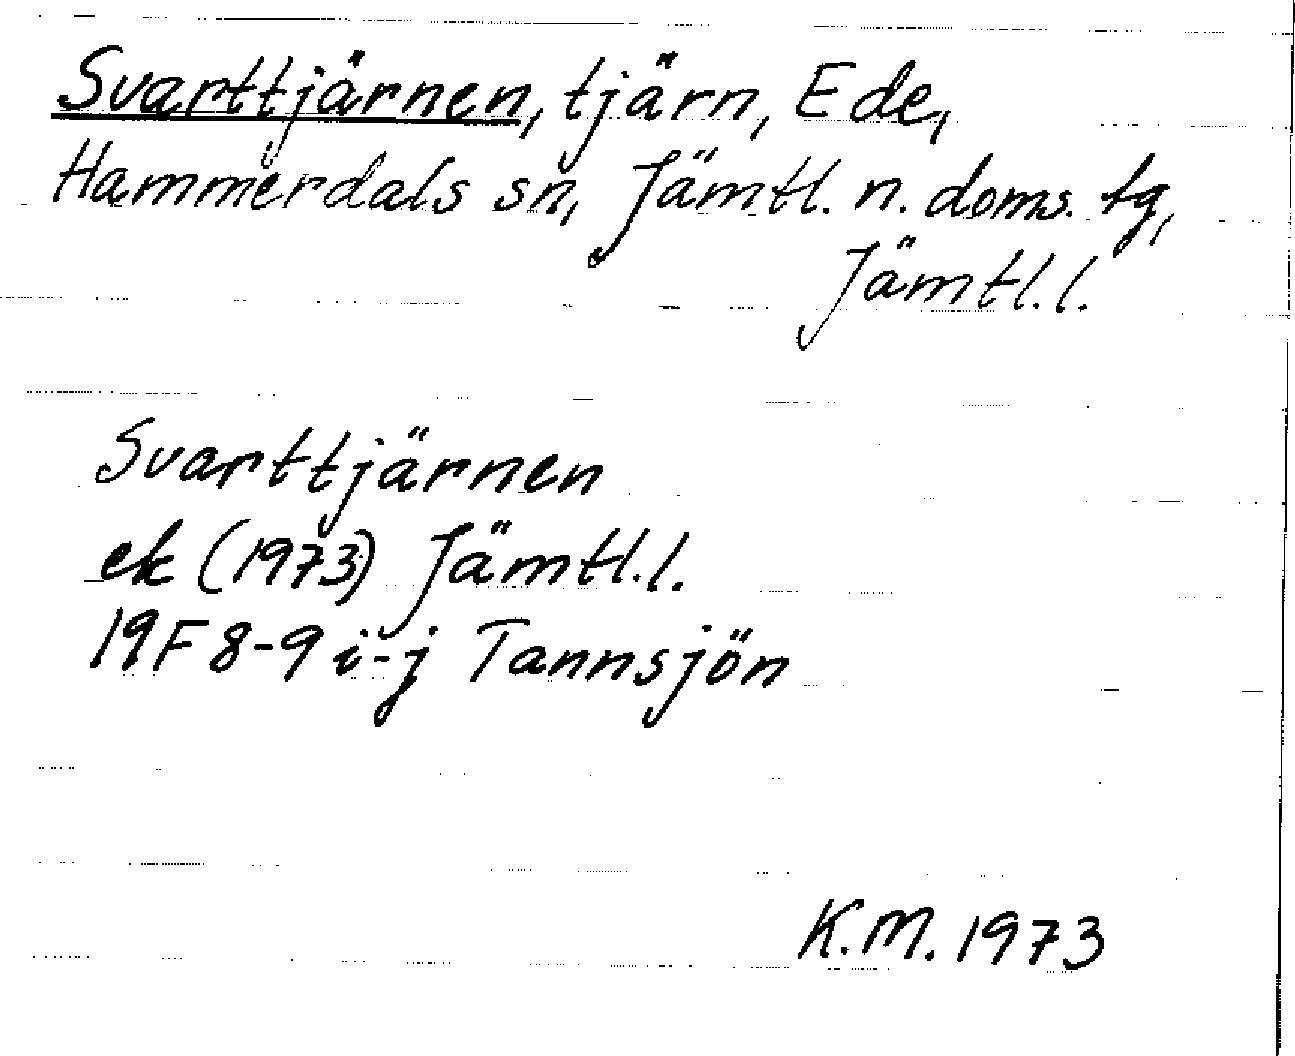 Svarttjärnen, tjärn, Ede,
Hammerdals sn, Jämtl. n. doms. tg,
Jämtl. l.
Svarttjärnen
ek (1973) Jämtl. l.
19F 8-9 i-j Tannsjön
K.M. 1973